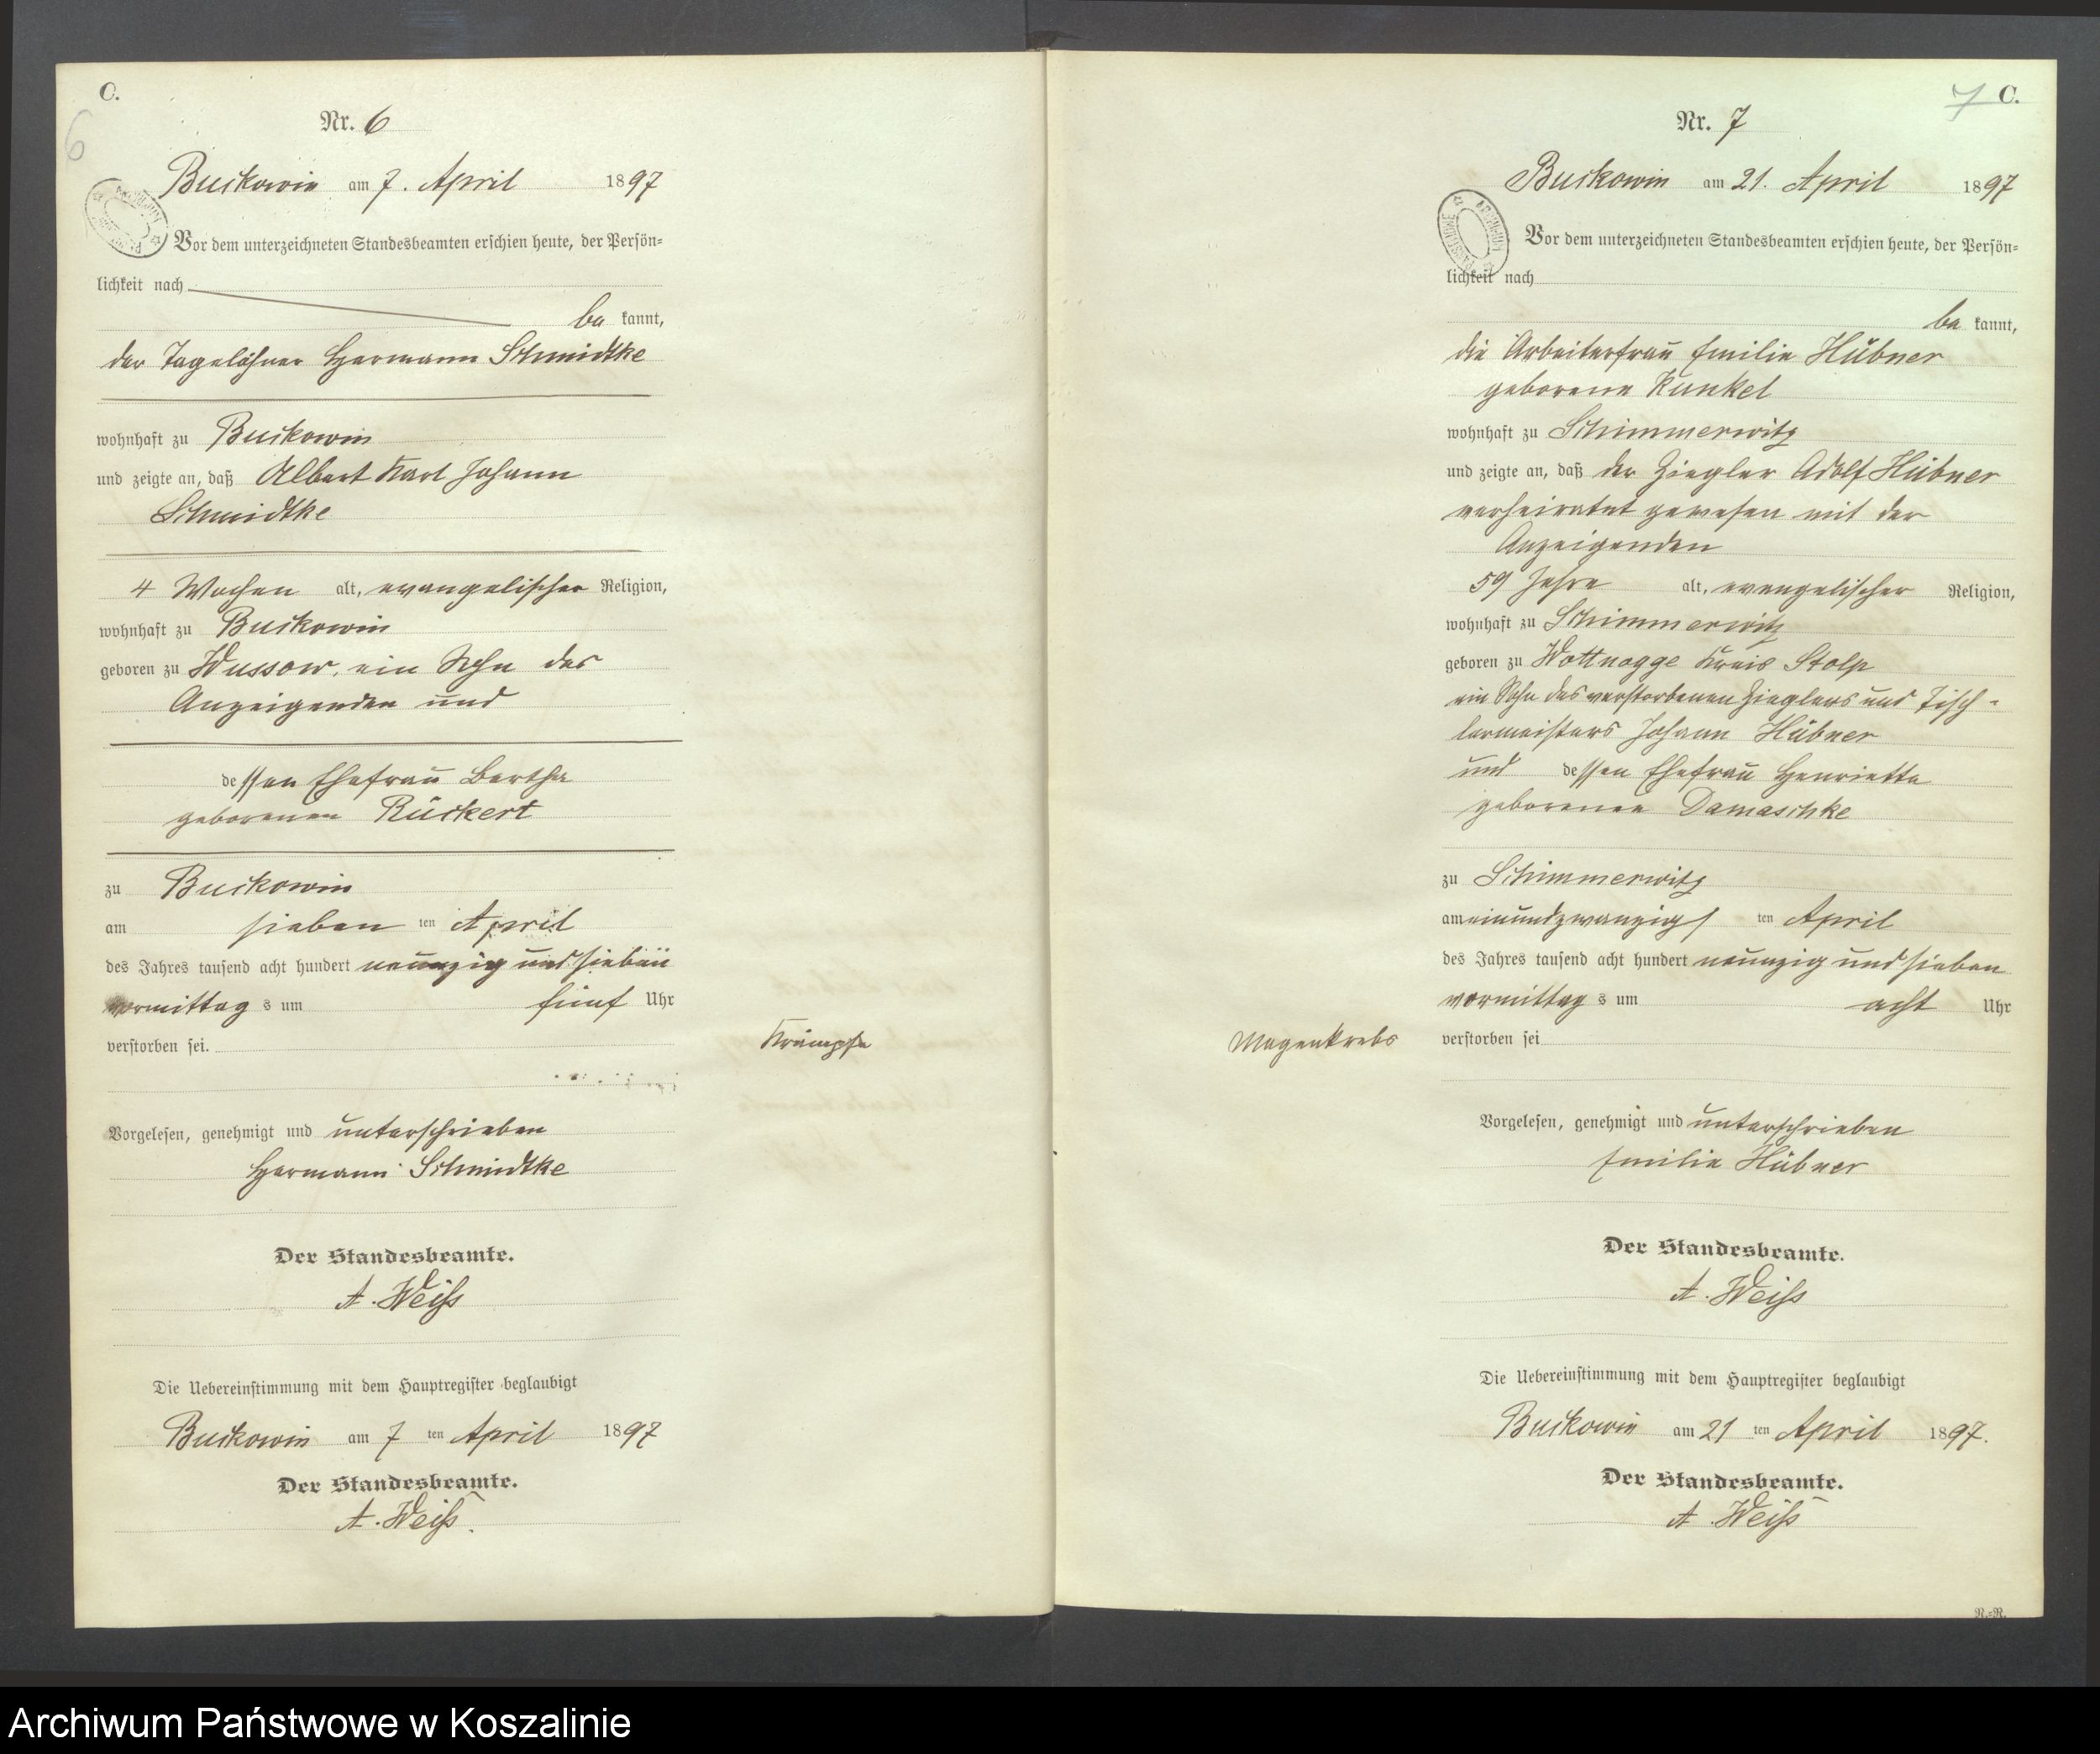 C.
6
Nr. 6
Buckowin am 7. April 1897
Vor dem unterzeichneten Standesbeamten erschien heute, der Persön=
lichkeit nach
be kannt,
der Tagelöhner Hermann Schmidtke
wohnhaft zu Buckowin
und zeigte an, daß Albert Karl Johann
Schmidtke
4 Wochen alt, evangelischer Religion,
wohnhaft zu Buckowin
geboren zu Wussow, ein Sohn des
Anzeigenden und
dessen Ehefrau Bertha
geborenen Rückert
zu Buckowin
am sieben ten April
des Jahres tausend acht hundert neunzig und sieben
vormittag s um fünf Uhr
verstorben sei.
Krämpfe
Vorgelesen, genehmigt und unterschrieben
Hermann Schmidtke
Der Standesbeamte.
A. Weiß
Die Uebereinstimmung mit dem Hauptregister beglaubigt
Buckowin am 7 ten April 1897
Der Standesbeamte.
A. Weiß.
7 C.
Nr. 7
Buckowin am 21. April 1897
ARCHIWUM PAŃSTWOWE
Vor dem unterzeichneten Standesbeamten erschien heute, der Persön=
lichkeit nach
be kannt,
die Arbeiterfrau Emilie Hübner
geborene Kunkel
wohnhaft zu Schimmerwitz
und zeigte an, daß der Ziegler Adolf Hübner
verheiratet gewesen mit der
Anzeigenden
59 Jahre alt, evangelischer Religion,
wohnhaft zu Schimmerwitz
geboren zu Wottnogge Kreis Stolp
ein Sohn des verstorbenen Zieglers und Tisch-
lermeisters Johann Hübner
und dessen Ehefrau Henriette
geborenen Damaschke
zu Schimmerwitz
am einundzwanzigs ten April
des Jahres tausend acht hundert neunzig und sieben
vormittag s um acht Uhr
Magenkrebs verstorben sei
Vorgelesen, genehmigt und unterschrieben
Emilie Hübner
Der Standesbeamte.
A. Weiß
Die Uebereinstimmung mit dem Hauptregister beglaubigt
Buckowin am 21 ten April 1897.
Der Standesbeamte.
A. Weiß
R.=R.
Archiwum Państwowe w Koszalinie